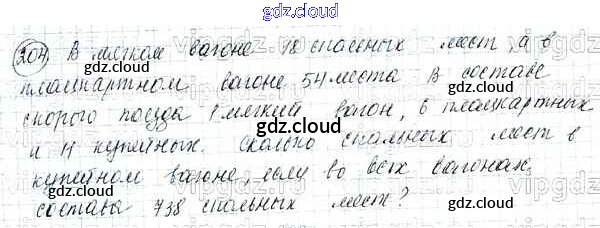 gdz.cloud
204. В мягком вагоне 18 спальных мест, а в
плацкартном вагоне 54 места. В составе
скорого поезда 1 мягкий вагон, 6 плацкартных
и 11 купейных. Сколько спальных мест в
купейном вагоне, если во всех вагонах
состава 738 спальных мест?